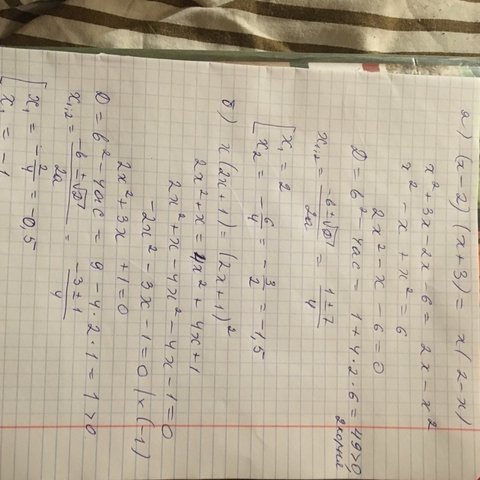 а) (x-2)(x+3) = x(2-x)
x² + 3x - 2x - 6 = 2x - x²
x² - x + x² = 6
2x² - x - 6 = 0
D = b² - 4ac = 1 + 4·2·6 = 49 > 0
2 корня
x₁,₂ = (-b ± √D)/2a = (1 ± 7)/4
[ x₁ = 2
x₂ = -6/4 = -3/2 = -1,5
б) x(2x+1) = (2x+1)²
2x² + x = 4x² + 4x + 1
2x² + x - 4x² - 4x - 1 = 0
-2x² - 3x - 1 = 0 |×(-1)
2x² + 3x + 1 = 0
D = b² - 4ac = 9 - 4·2·1 = 1 > 0
x₁,₂ = (-b ± √D)/2a = (-3 ± 1)/4
[ x₁ = -2/4 = -0,5
x₁ = -1